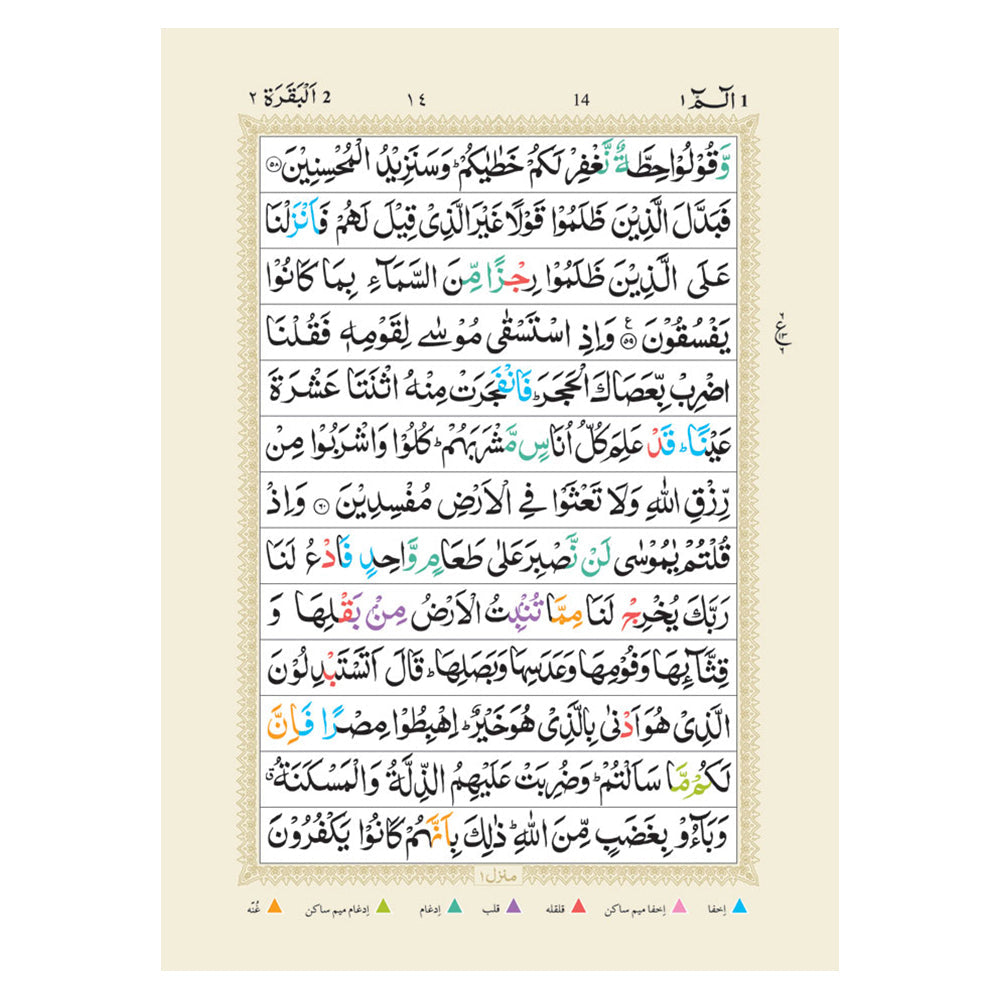 1 الٓـمّٓ ١ 14 ١٤ 2 اَلْبَقَرَة ٢
وَّقُوْلُوْا حِطَّةٌ نَّغْفِرْ لَكُمْ خَطٰيٰكُمْ ؕ وَسَنَزِيْدُ الْمُحْسِنِيْنَ ۝۵۸
فَبَدَّلَ الَّذِيْنَ ظَلَمُوْا قَوْلًا غَيْرَ الَّذِيْ قِيْلَ لَهُمْ فَاَنْزَلْنَا
عَلَى الَّذِيْنَ ظَلَمُوْا رِجْزًا مِّنَ السَّمَآءِ بِمَا كَانُوْا
يَفْسُقُوْنَ ۝۵۹ ع وَاِذِ اسْتَسْقٰى مُوْسٰى لِقَوْمِهٖ فَقُلْنَا
اضْرِبْ بِّعَصَاكَ الْحَجَرَ ؕ فَانْفَجَرَتْ مِنْهُ اثْنَتَا عَشْرَةَ
عَيْنًا ؕ قَدْ عَلِمَ كُلُّ اُنَاسٍ مَّشْرَبَهُمْ ؕ كُلُوْا وَاشْرَبُوْا مِنْ
رِّزْقِ اللّٰهِ وَلَا تَعْثَوْا فِى الْاَرْضِ مُفْسِدِيْنَ ۝۶۰ وَاِذْ
قُلْتُمْ يٰمُوْسٰى لَنْ نَّصْبِرَ عَلٰى طَعَامٍ وَّاحِدٍ فَادْعُ لَنَا
رَبَّكَ يُخْرِجْ لَنَا مِمَّا تُنْۢبِتُ الْاَرْضُ مِنْۢ بَقْلِهَا وَ
قِثَّآئِهَا وَفُوْمِهَا وَعَدَسِهَا وَبَصَلِهَا ؕ قَالَ اَتَسْتَبْدِلُوْنَ
الَّذِيْ هُوَ اَدْنٰى بِالَّذِيْ هُوَ خَيْرٌ ؕ اِهْبِطُوْا مِصْرًا فَاِنَّ
لَكُمْ مَّا سَاَلْتُمْ ؕ وَضُرِبَتْ عَلَيْهِمُ الذِّلَّةُ وَالْمَسْكَنَةُ ۗ
وَبَآءُوْ بِغَضَبٍ مِّنَ اللّٰهِ ؕ ذٰلِكَ بِاَنَّهُمْ كَانُوْا يَكْفُرُوْنَ
٦ ع ١٣ ٦
منزل ١
اِخفا اِخفا میم ساکن قلقله قلب اِدغام اِدغام میم ساکن غُنّه